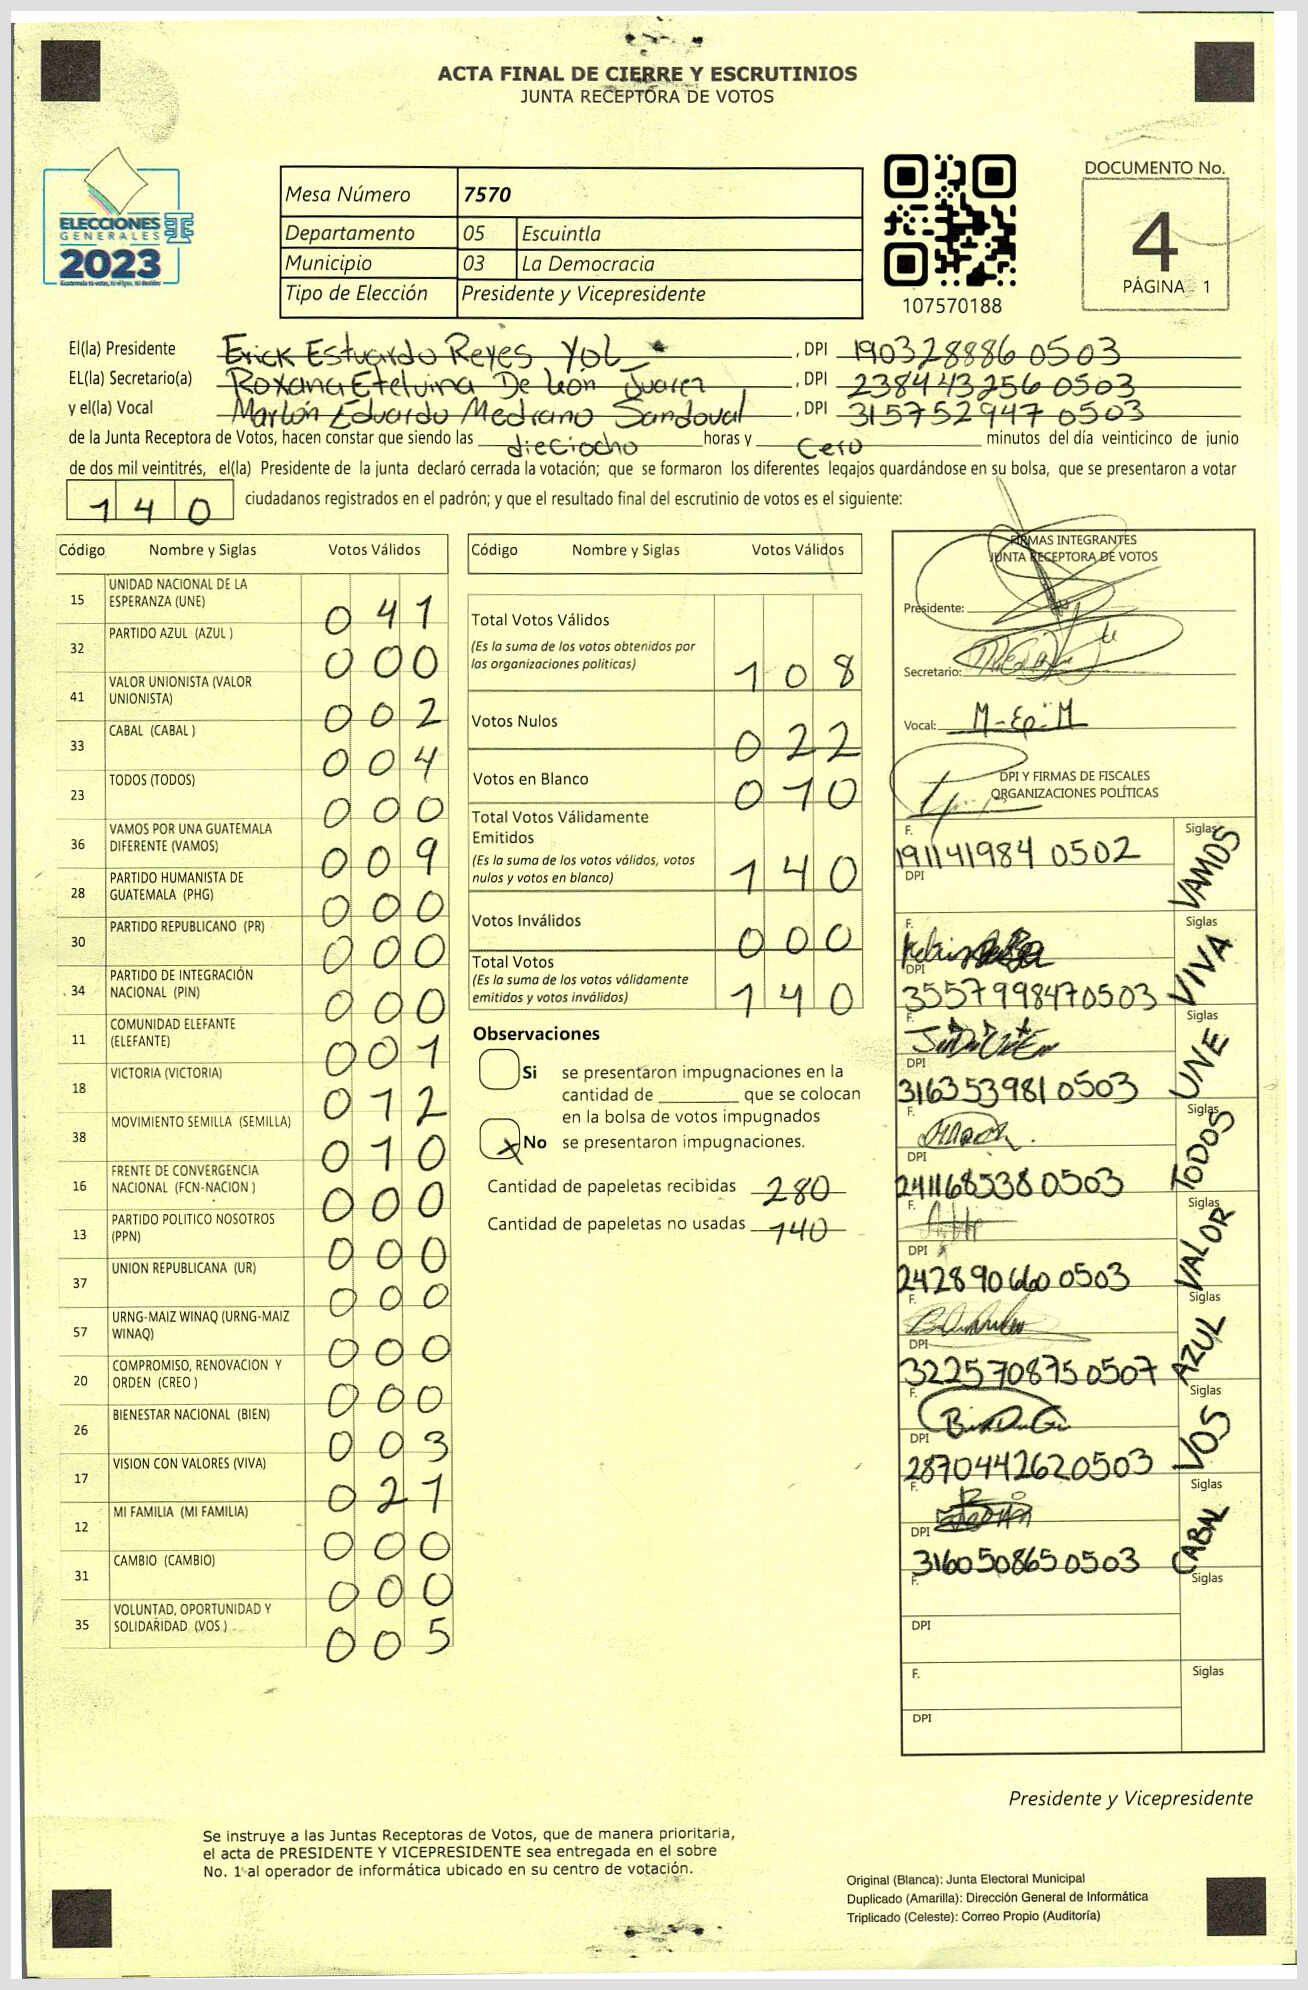 ACTA FINAL DE CIERRE Y ESCRUTINIOS
JUNTA RECEPTORA DE VOTOS
ELECCIONES
GENERALES
2023
Mesa Número 7570
Departamento 05 Escuintla
Municipio 03 La Democracia
Tipo de Elección Presidente y Vicepresidente
107570188
DOCUMENTO No.
4
PÁGINA 1
El(la) Presidente Erick Estuardo Reyes Yol , DPI 190328886 0503
EL(la) Secretario(a) Roxana Etelvina De León Juarez , DPI 238443256 0503
y el(la) Vocal Marlón Eduardo Medrano Sandoval , DPI 315752947 0503
de la Junta Receptora de Votos, hacen constar que siendo las dieciocho horas y Cero minutos del día veinticinco de junio
de dos mil veintitrés, el(la) Presidente de la junta declaró cerrada la votación; que se formaron los diferentes legajos guardándose en su bolsa, que se presentaron a votar
140 ciudadanos registrados en el padrón; y que el resultado final del escrutinio de votos es el siguiente:
Código Nombre y Siglas Votos Válidos
15 UNIDAD NACIONAL DE LA ESPERANZA (UNE) 041
32 PARTIDO AZUL (AZUL ) 000
41 VALOR UNIONISTA (VALOR UNIONISTA) 002
33 CABAL (CABAL ) 004
23 TODOS (TODOS) 000
36 VAMOS POR UNA GUATEMALA DIFERENTE (VAMOS) 009
28 PARTIDO HUMANISTA DE GUATEMALA (PHG) 000
30 PARTIDO REPUBLICANO (PR) 000
34 PARTIDO DE INTEGRACIÓN NACIONAL (PIN) 000
11 COMUNIDAD ELEFANTE (ELEFANTE) 001
18 VICTORIA (VICTORIA) 012
38 MOVIMIENTO SEMILLA (SEMILLA) 010
16 FRENTE DE CONVERGENCIA NACIONAL (FCN-NACION ) 000
13 PARTIDO POLITICO NOSOTROS (PPN) 000
37 UNION REPUBLICANA (UR) 000
57 URNG-MAIZ WINAQ (URNG-MAIZ WINAQ) 000
20 COMPROMISO, RENOVACION Y ORDEN (CREO ) 000
26 BIENESTAR NACIONAL (BIEN) 003
17 VISION CON VALORES (VIVA) 021
12 MI FAMILIA (MI FAMILIA) 000
31 CAMBIO (CAMBIO) 000
35 VOLUNTAD, OPORTUNIDAD Y SOLIDARIDAD (VOS ) 005
Código Nombre y Siglas Votos Válidos
Total Votos Válidos
(Es la suma de los votos obtenidos por
las organizaciones políticas) 108
Votos Nulos 022
Votos en Blanco 010
Total Votos Válidamente
Emitidos
(Es la suma de los votos válidos, votos
nulos y votos en blanco) 140
Votos Inválidos 000
Total Votos
(Es la suma de los votos válidamente
emitidos y votos inválidos) 140
Observaciones
Si se presentaron impugnaciones en la
cantidad de ________ que se colocan
en la bolsa de votos impugnados
X No se presentaron impugnaciones.
Cantidad de papeletas recibidas 280
Cantidad de papeletas no usadas 140
FIRMAS INTEGRANTES
JUNTA RECEPTORA DE VOTOS
Presidente:
Secretario:
Vocal:
DPI Y FIRMAS DE FISCALES
ORGANIZACIONES POLÍTICAS
F. Siglas VAMOS
DPI 191141984 0502
F. Siglas VIVA
DPI 355799847 0503
F. Siglas UNE
DPI 316353981 0503
F. Siglas TODOS
DPI 241168538 0503
F. Siglas VALOR
DPI 242890660 0503
F. Siglas AZUL
DPI 322570875 0507
F. Siglas VOS
DPI 287044262 0503
F. Siglas CABAL
DPI 316050865 0503
F. Siglas
DPI
F. Siglas
DPI
Presidente y Vicepresidente
Se instruye a las Juntas Receptoras de Votos, que de manera prioritaria,
el acta de PRESIDENTE Y VICEPRESIDENTE sea entregada en el sobre
No. 1 al operador de informática ubicado en su centro de votación.
Original (Blanca): Junta Electoral Municipal
Duplicado (Amarilla): Dirección General de Informática
Triplicado (Celeste): Correo Propio (Auditoría)